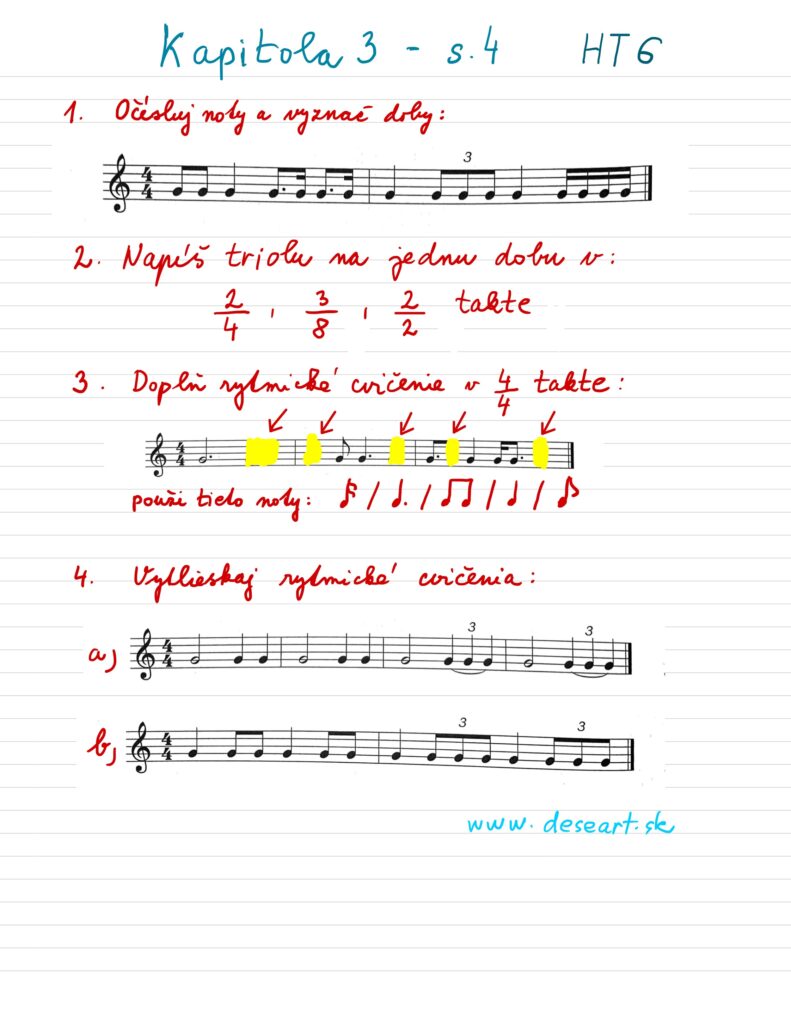 Kapitola 3 - s.4 HT 6
1. Očísluj noty a vyznač doby:
4/4 3
2. Napíš triolu na jednu dobu v:
2/4 , 3/8 , 2/2 takte
3. Doplň rytmické cvičenie v 4/4 takte:
4/4
použi tieto noty: / / / /
4. Vytlieskaj rytmické cvičenia:
a) 4/4 3 3
b) 4/4 3 3
www.deseart.sk